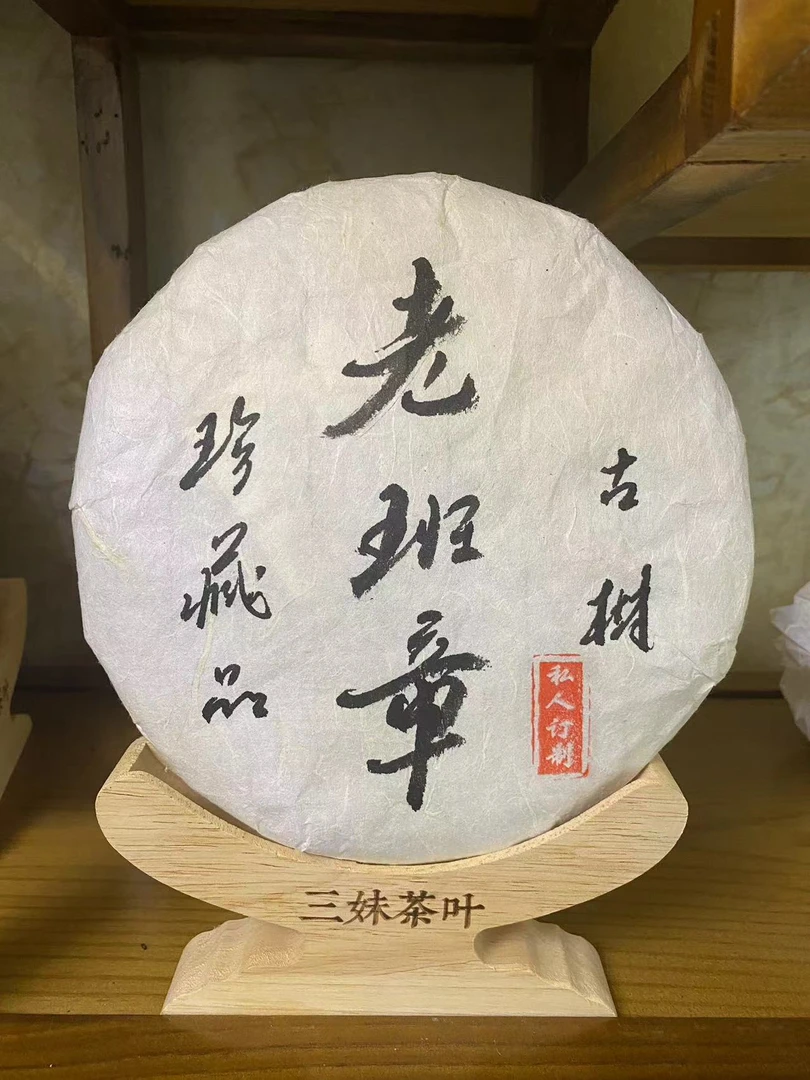 古樹
老班章
珍藏品
私人订制
三妹茶叶